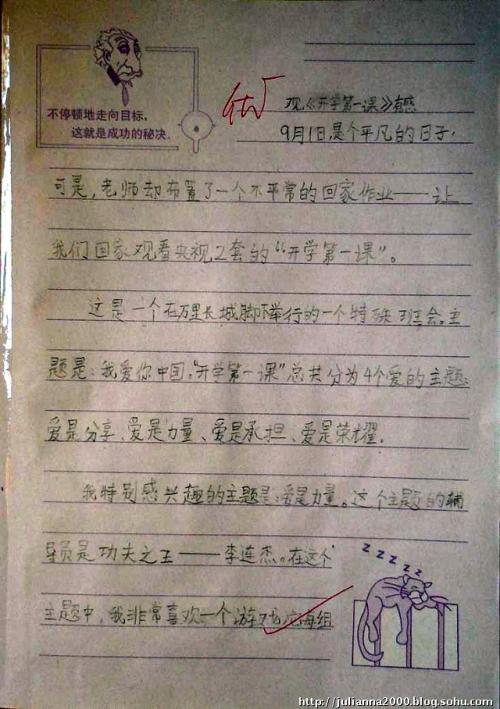 不停顿地走向目标，
这就是成功的秘决。
优
观《开学第一课》有感
9月1日,是个平凡的日子,
可是，老师却布置了一个不平常的回家作业——让
我们回家观看央视2套的“开学第一课”。
这是一个在万里长城脚下举行的一个特殊班会。主
题是：我爱你中国，“开学第一课”总共分为4个爱的主题：
爱是分享、爱是力量、爱是承担、爱是荣耀。
我特别感兴趣的主题是：爱是力量。这个主题的辅
导员是功夫之王——李连杰。在这个
主题中，我非常喜欢一个游戏,每组
ZZZZZ
http://julianna2000.blog.sohu.com